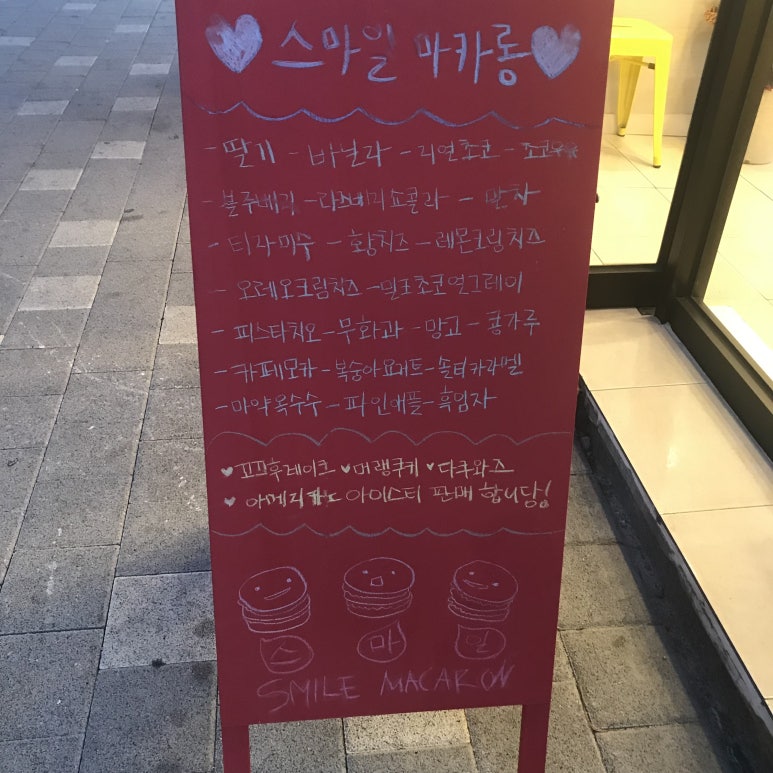 스마일 마카롱
- 딸기 - 바닐라 - 리얼초코 - 쵸코우유
- 블루베리 - 라즈베리쇼콜라 - 말차
- 티라미수 - 황치즈 - 레몬크림치즈
- 오레오크림치즈 - 발로초코얼그레이
- 피스타치오 - 무화과 - 망고 - 콩가루
- 카페모카 - 복숭아요거트 - 솔티카라멜
- 마약옥수수 - 파인애플 - 흑임자
♥ 꼬끄후레이크 ♥ 머랭쿠키 ♥ 다쿠와즈
♥ 아메리카노 아이스티 판매 합니당!
스 마 일
SMILE MACARON